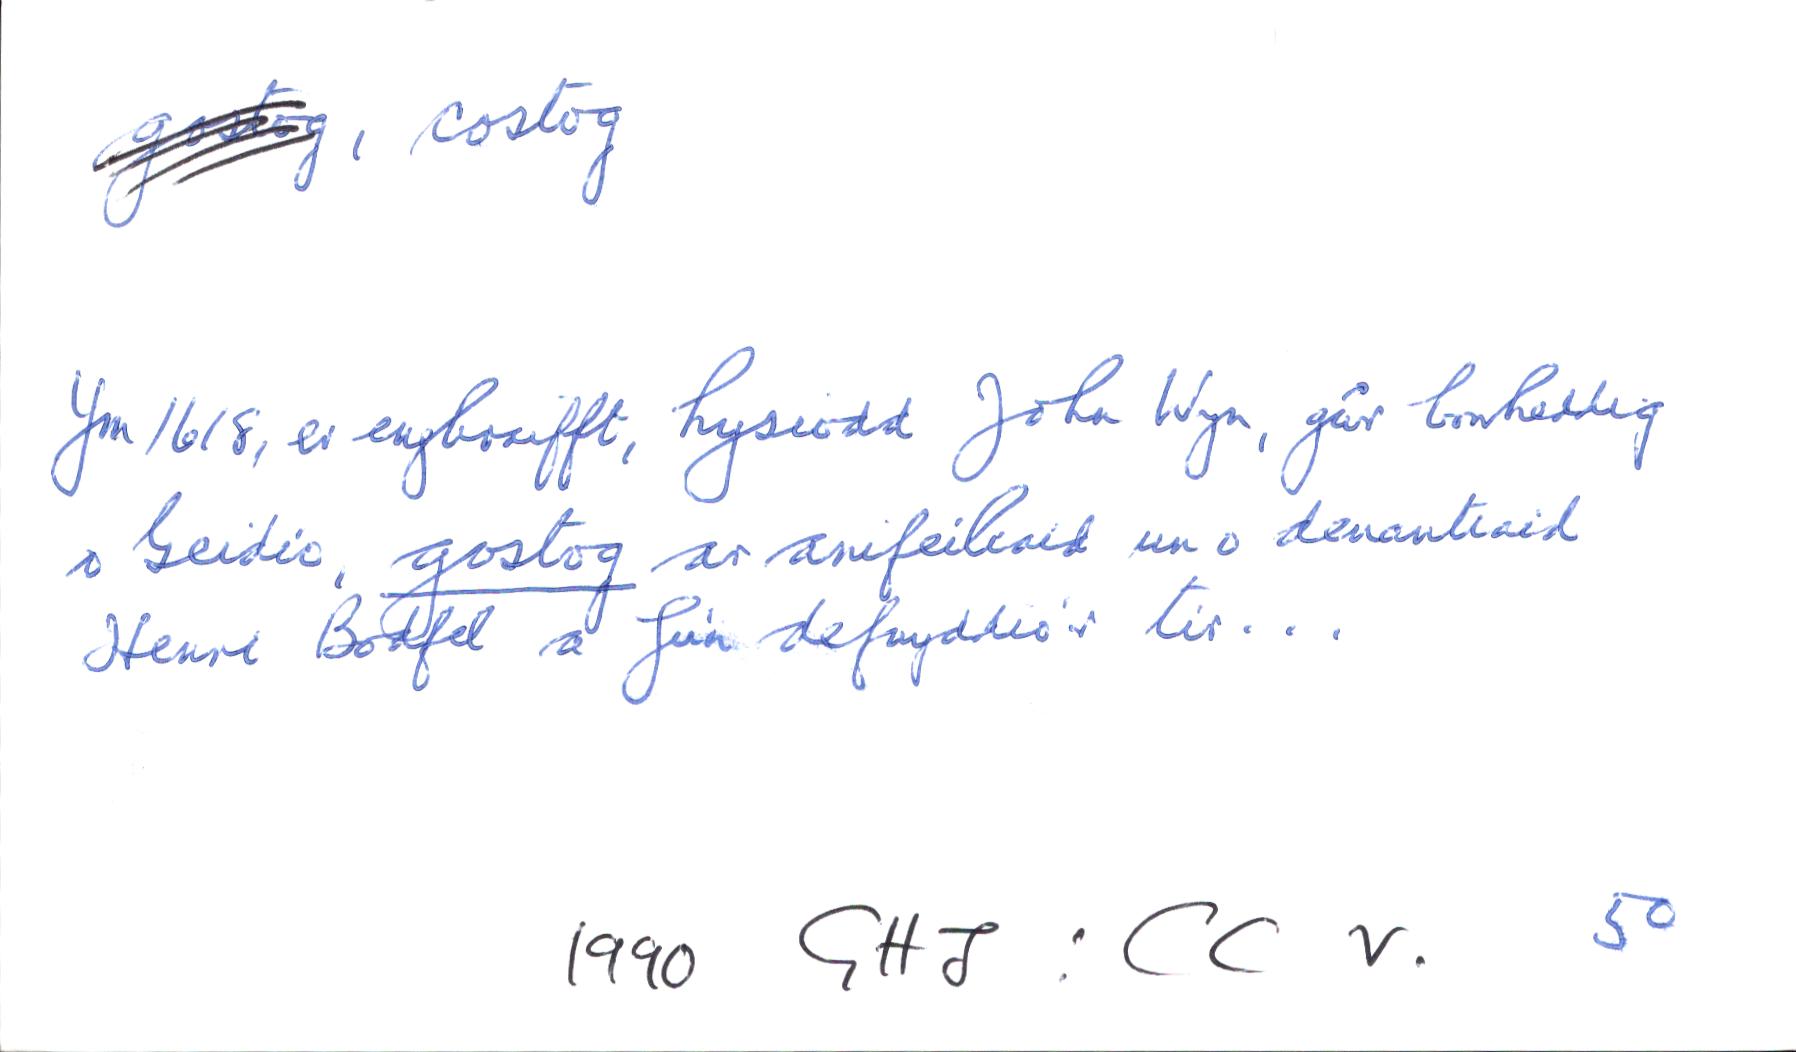 gostog, costog
Ym 1618, er enghraifft, hysiodd John Wyn, gŵr bonheddig
o Geidio, gostog ar anifeiliaid un o denantiaid
Henri Bodfel a fu'n defnyddio'r tir...
1990 GHJ : CC V. 50